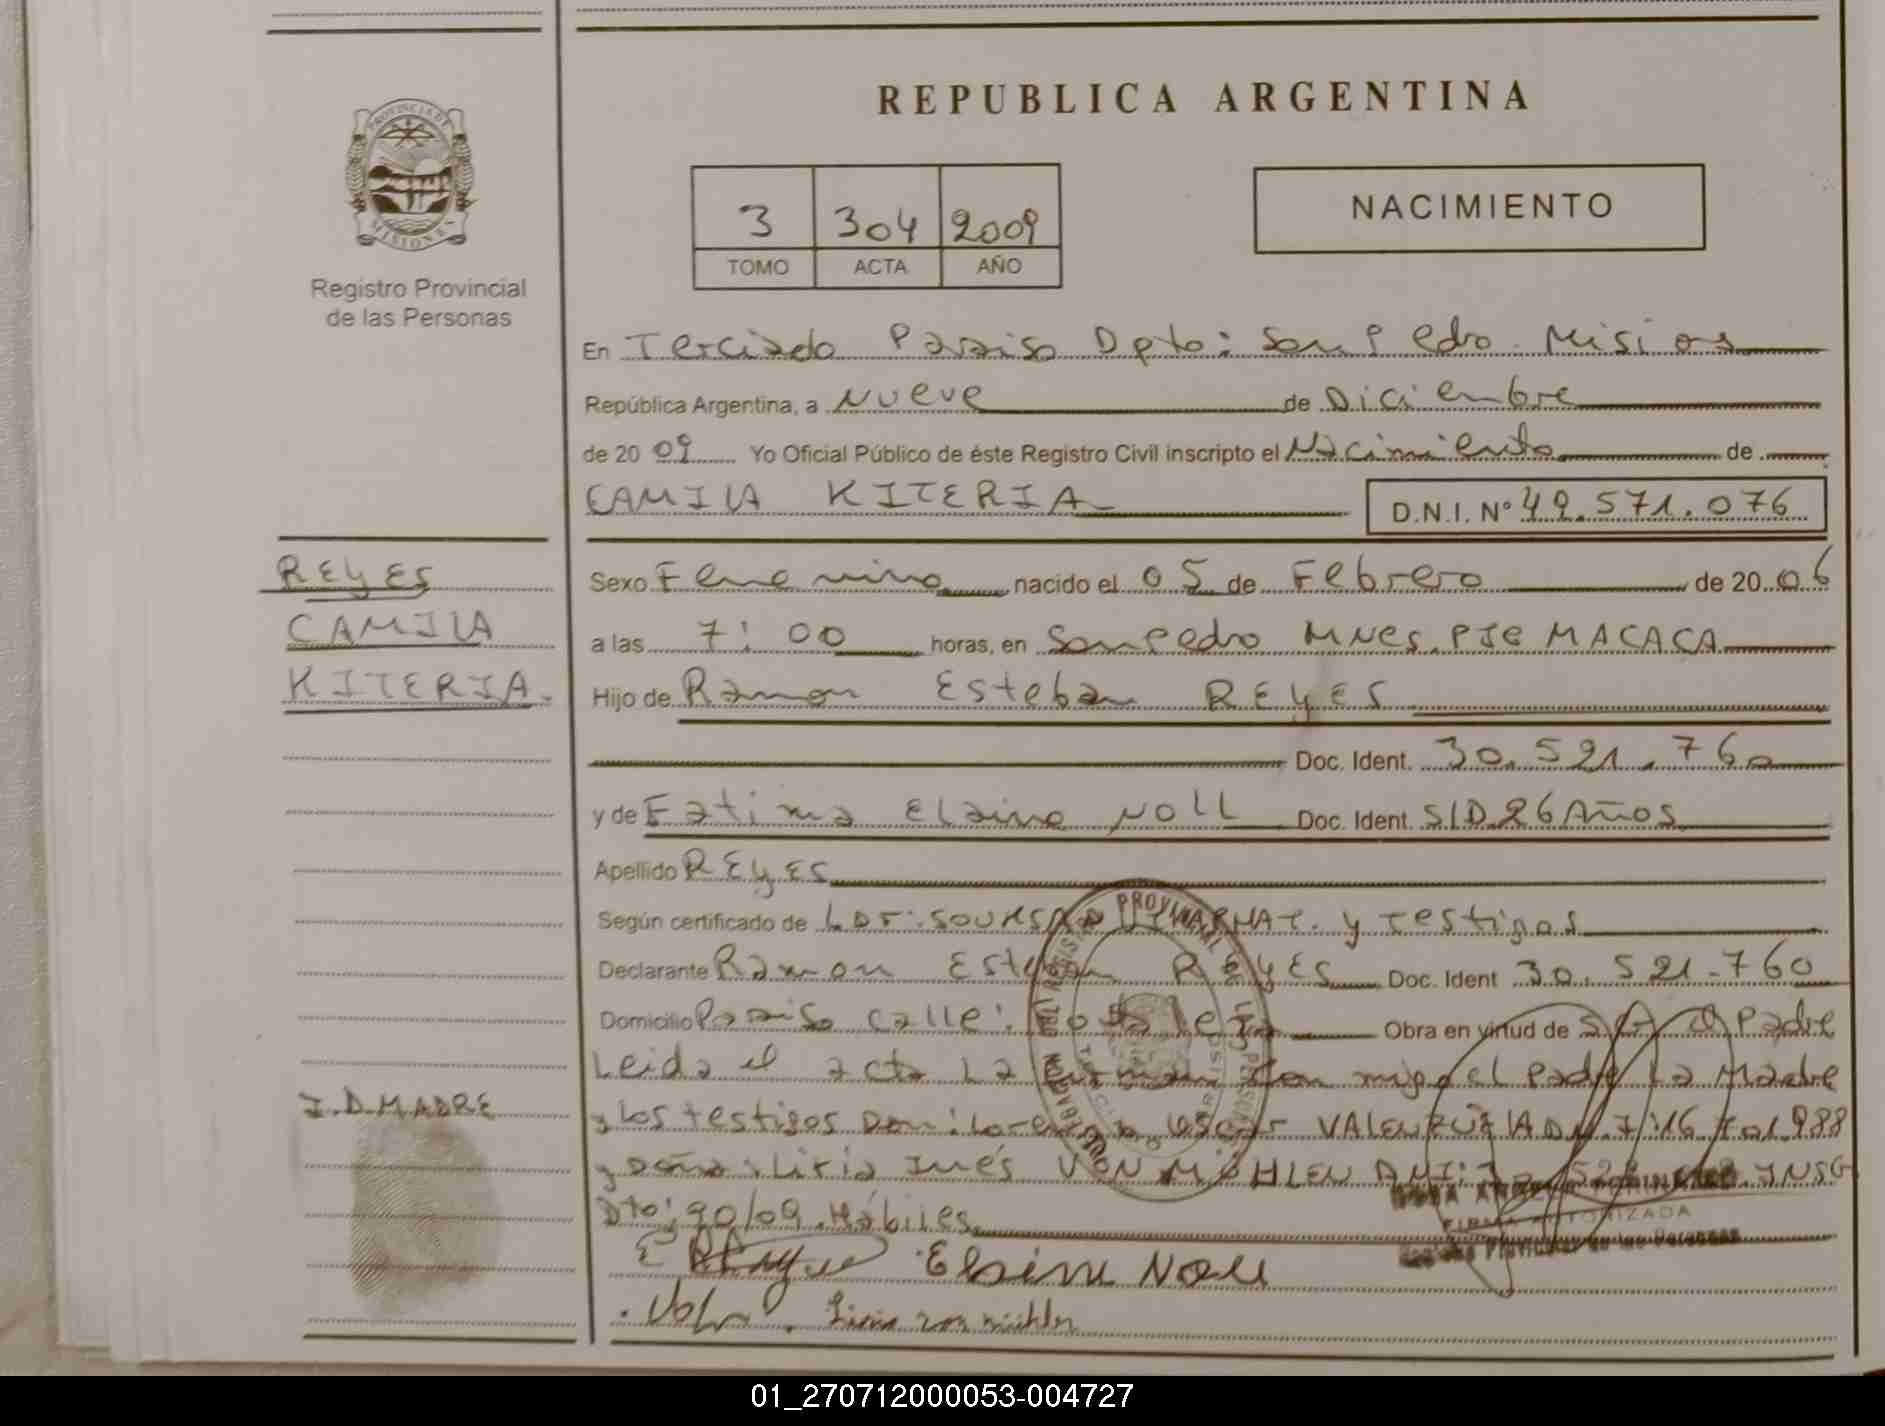 PROVINCIA DE
MISIONES
Registro Provincial
de las Personas
REPUBLICA ARGENTINA
3 304 2009
TOMO ACTA AÑO
NACIMIENTO
En Terciado Paraiso Dpto: San Pedro. Misiones
República Argentina, a Nueve de Diciembre
de 2009 Yo Oficial Público de éste Registro Civil inscripto el Nacimiento de
CAMILA KITERIA D.N.I. N° 49.571.076
REYES
CAMILA
KITERIA.
Sexo Femenino nacido el 05 de Febrero de 2006
a las 7:00 horas, en San Pedro MNES. PJE MACACA
Hijo de Ramon Esteban REYES
Doc. Ident. 30.521.760
y de Fatima Elaine NOLL Doc. Ident. S/D.26 Años
Apellido REYES
Según certificado de y Testigos
Declarante Ramon Esteban REYES Doc. Ident 30.521.760
Domicilio Paraiso calle: Obra en virtud de Padre
Leida el acta La Firman Con migo el Padre La Madre
y Los testigos Don: Lorenzo Oscar VALENZUELA
y doña: Liria Inés VON MÜHLEN DNI:
Dto: 90/09. Hábiles.
I.D. MADRE
FIRMA AUTORIZADA
Registro Provincial de las Personas
Elaine Noll
Liria von mühlen
01_270712000053-004727